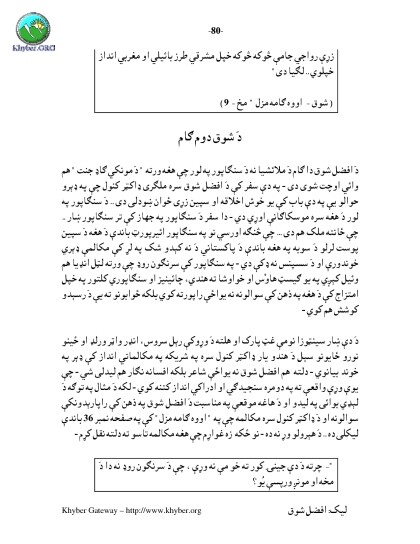 -80-
Khyber.ORG
زړې رواجي جامې څوکه څوکه خپل مشرقي طرز بائيلي او مغربي انداز
خپلوي.. لګيا دی"
( شوق - اووه ګامه مزل " مخ- 9 )
دَ شوق دوم ګام
دَ افضل شوق دا ګام دَ ملائشيا نه دَ سنګاپور په لور چې هغه ورته "دَ مونکي ګاډ جنت" هم
وائي اوچت شوی دی - په دې سفر کې دَ افضل شوق سره ملګری ډاکټر کنول چې په ډېرو
حوالو يې په دې باب کې يو خوش اخلاقه او سپين زړی ځوان ښودلی دی.. دَ سنګاپور په
لور دَ هغه سره موسکاګانې اوړي دي - دا سفر دَ سنګاپور په جهاز کې تر سنګاپور ښار..
چې ځانته ملک هم دی... چې څنګه اورسي نو په سنګاپور ائيرپورټ باندې دَ هغه دَ سپين
پوست لرلو دَ سوبه په هغه باندې دَ پاکستاني دَ نه کېدو شک په لړ کې مکالمې ډېرې
خوندورې او دَ سسپنس نه ډکې دي - په سنګاپور کې سرنګون روډ چې ورته لټل انډيا هم
وئيل کېږي په يو ګيسټ هاوْس او خواوشا نه هندي، چائينيز او سنګاپوري کلتور په خپل
امتزاج کې دَ هغه په ذهن کې سوالونه نه يواځې راپورته کوي بلکه ځوابونو ته يې دَ رسېدو
کوشش هم کوي-
دَ دې ښار سينټوزا نومې غټ پارک او هلته دَ وړوکي رېل سروس، انډر واټر ورلډ او ځينو
نورو ځايونو سېل دَ هندو يار ډاکټر کنول سره په شريکه په مکالماتي انداز کې ډېر په
خوند بيانوي - دلته هم افضل شوق نه يواځې شاعر بلکه افسانه نګار هم ليدلی شي - چې
يوې وړې واقعې ته په دومره سنجيدګي او ادراکي انداز کتنه کوي - لکه دَ مثال په توګه دَ
لېډي بوائي په ليدو او دَ هاغه موقعې په مناسبت دَ افضل شوق په ذهن کې راپارېدونکي
سوالونه او دَ ډاکټر کنول سره مکالمه چې په "اووه ګامه مزل" کې په صفحه نمبر 36 باندې
ليکلی ده.. دَ هېرولو وړ نه ده - نو ځکه زه غواړم چې هغه مکالمه تاسو ته دلته نقل کړم -
"- چرته دَ دې جينۍ کور ته خو مې نه وړې، چې دَ سرنګون روډ نه دا دَ
مخه او مونږ ورپسې يُو؟
ليک: افضل شوق
Khyber Gateway – http://www.khyber.org